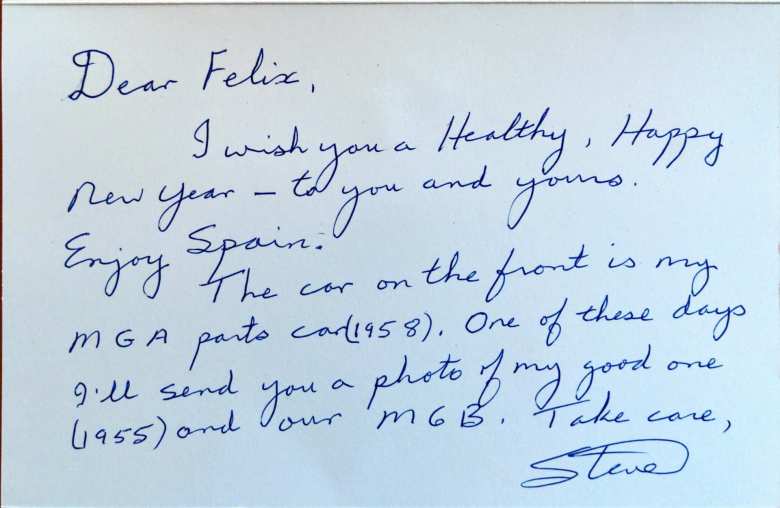 Dear Felix,
I wish you a Healthy, Happy
New Year – to you and yours.
Enjoy Spain.
The car on the front is my
MGA parts car (1958). One of these days
I'll send you a photo of my good one
(1955) and our MGB. Take care,
Steve